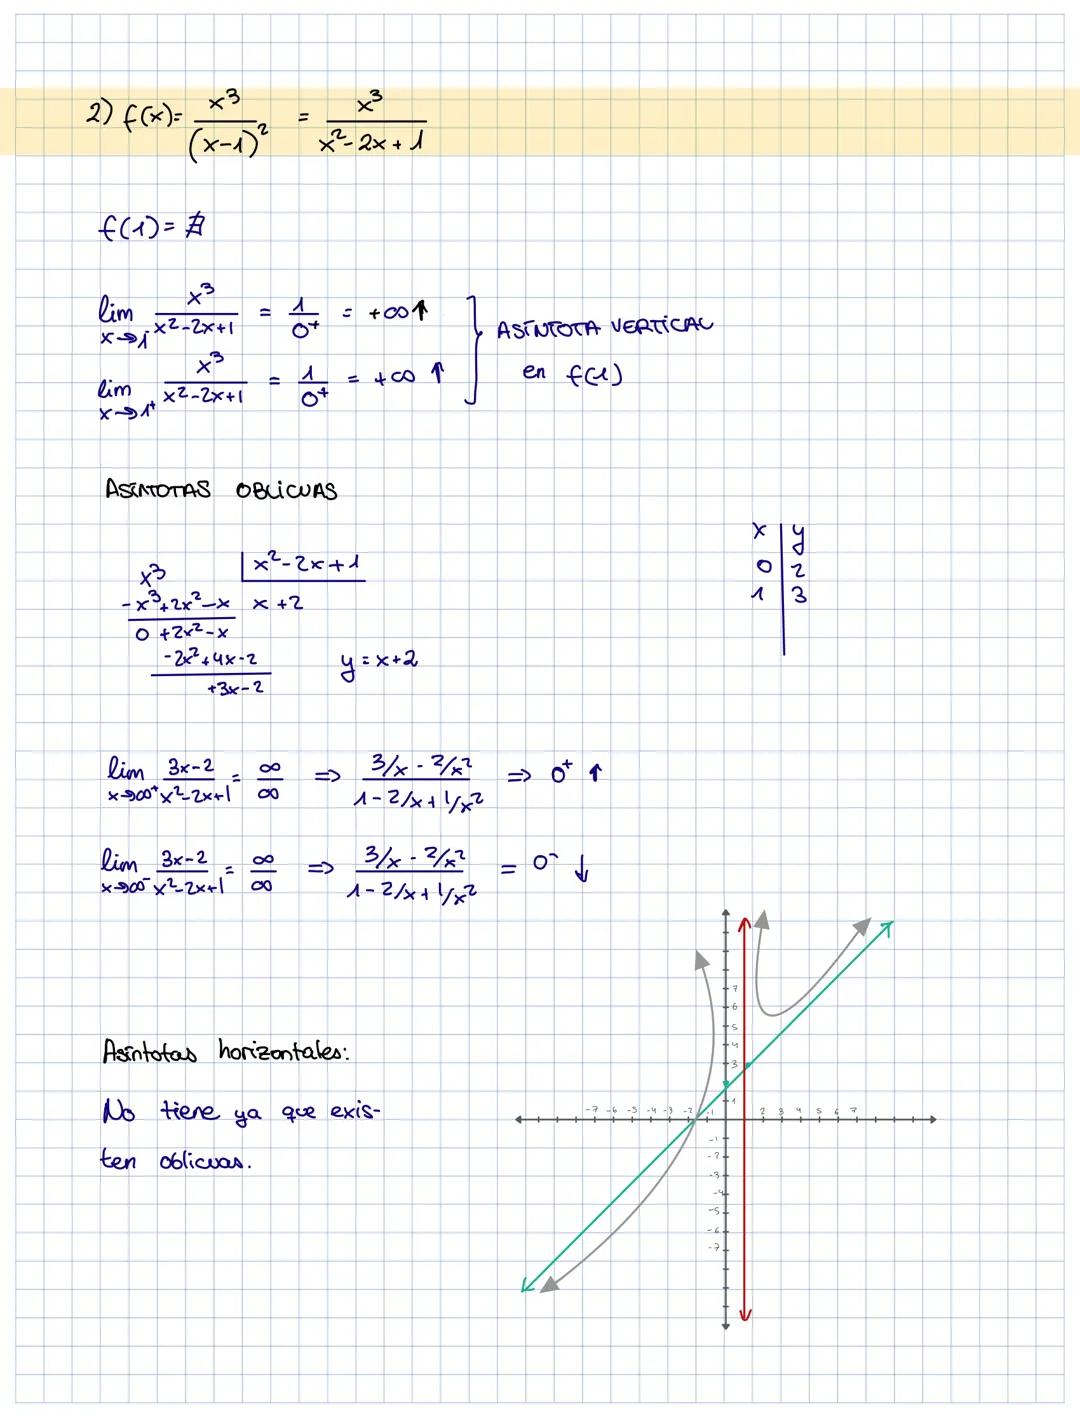 2) f(x)= x³/(x-1)² = x³/(x²-2x+1)
f(1)= ∄
lim x→1⁻ x³/(x²-2x+1) = 1/0⁺ = +∞ ↑
lim x→1⁺ x³/(x²-2x+1) = 1/0⁺ = +∞ ↑
} ASÍNTOTA VERTICAL
en f(1)
ASÍNTOTAS OBLICUAS
x | y
0 | 2
1 | 3
x³ | x²-2x+1
-x³+2x²-x x+2
0 +2x²-x
-2x²+4x-2
+3x-2
y=x+2
lim x→∞⁺ 3x-2/(x²-2x+1) = ∞/∞ ⇒ (3/x - 2/x²)/(1-2/x+1/x²) ⇒ 0⁺ ↑
lim x→∞⁻ 3x-2/(x²-2x+1) = ∞/∞ ⇒ (3/x - 2/x²)/(1-2/x+1/x²) = 0⁻ ↓
Asíntotas horizontales:
No tiene ya que exis-
ten oblicuas.
7
6
5
4
3
1
-7 -6 -5 -4 -3 -2 -1 2 3 4 5 6 7
-1
-2
-3
-4
-5
-6
-7